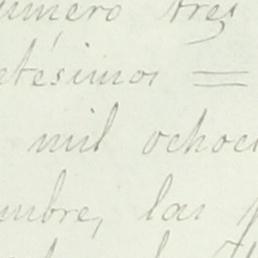 número tres
etésimos =
mil ochoci
mbre, las